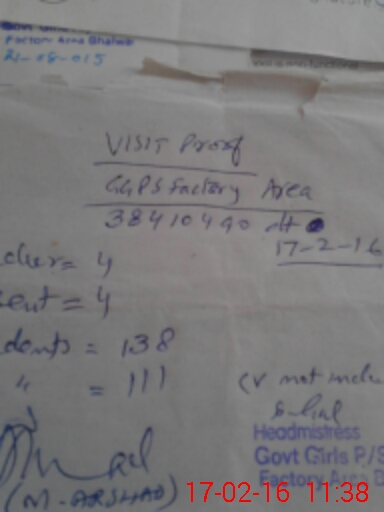 Factory Area Bhalwal
21-08-015
VISIT Proof
GGPS Factory Area
38410490 dt
17-2-16
cher = 4
sent = 4
dents = 138
" = 111
(v not inclu
Headmistress
Govt Girls P/S
Factory Area B
(M. ARSHAD)
17-02-16 11:38